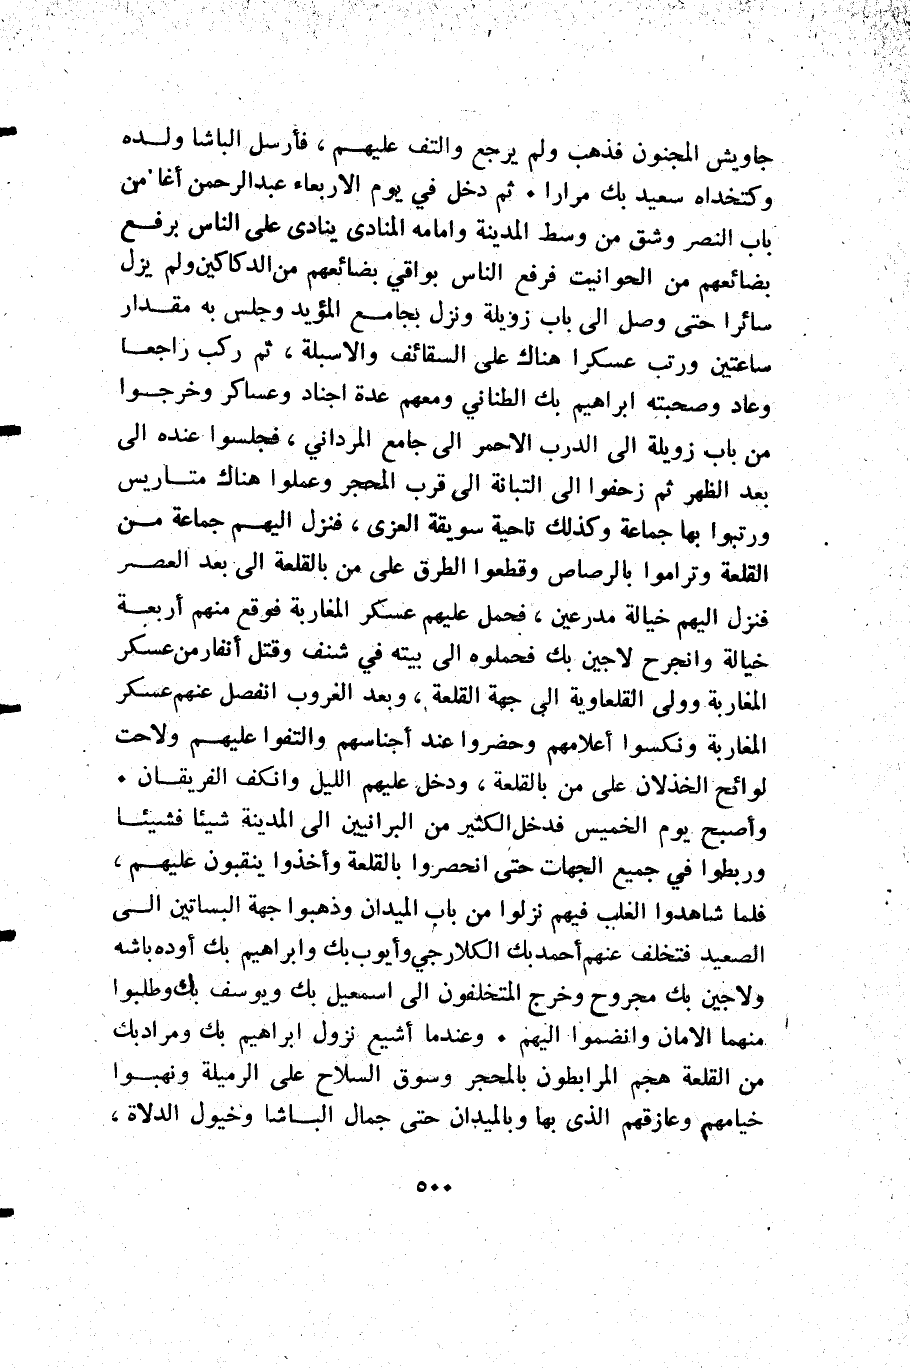 جاويش المجنون فذهب ولم يرجع والتف عليهـــم ، فأرسل الباشا ولـــده
وكتخداه سعيد بك مرارا ٠ ثم دخل في يوم الاربعاء عبدالرحمن أغا من
باب النصر وشق من وسط المدينة وامامه المنادى ينادى على الناس برفـــع
بضائعهم من الحوانيت فرفع الناس بواقي بضائعهم من الدكاكين ولم يزل
سائرا حتى وصل الى باب زويلة ونزل بجامـــع المؤيد وجلس به مقـــدار
ساعتين ورتب عسكرا هناك على السقائف والاسبلة ، ثم ركب راجعـــا
وعاد وصحبته ابراهيم بك الطناني ومعهم عدة اجناد وعساكر وخرجـــوا
من باب زويلة الى الدرب الاحمر الى جامع المرداني ، فجلسوا عنده الى
بعد الظهر ثم زحفوا الى التبانة الى قرب المحجر وعملوا هناك متـــاريس
ورتبوا بها جماعة وكذلك ناحية سويقة العزى ، فنزل اليهـــم جماعة مـــن
القلعة وتراموا بالرصاص وقطعوا الطرق على من بالقلعة الى بعد العصـــر
فنزل اليهم خيالة مدرعين ، فحمل عليهم عسكر المغاربة فوقع منهم أربعـــة
خيالة وانجرح لاجين بك فحملوه الى بيته في شنف وقتل أنفار من عسكر
المغاربة وولى القلعاوية الى جهة القلعة ، وبعد الغروب انفصل عنهم عسكر
المغاربة ونكسوا أعلامهم وحضروا عند أجناسهم والتفوا عليهـــم ولاحت
لوائح الخذلان على من بالقلعة ، ودخل عليهم الليل وانكف الفريقـــان ٠
وأصبح يوم الخميس فدخل الكثير من البرانيين الى المدينة شيئا فشيئـــا
وربطوا في جميع الجهات حتى انحصروا بالقلعة وأخذوا ينقبون عليهـــم ،
فلما شاهدوا الغلب فيهم نزلوا من باب الميدان وذهبوا جهة البساتين الـــى
الصعيد فتخلف عنهم أحمد بك الكلارجي وأيوب بك وابراهيم بك أوده باشه
ولاجين بك مجروح وخرج المتخلفون الى اسمعيل بك ويوسف بك وطلبوا
منهما الامان وانضموا اليهم ٠ وعندما أشيع نزول ابراهيم بك ومراد بك
من القلعة هجم المرابطون بالمحجر وسوق السلاح على الرميلة ونهبـــوا
خيامهم وعازقهم الذى بها وبالميدان حتى جمال البـــاشا وخيول الدلاة ،
٥٠٠